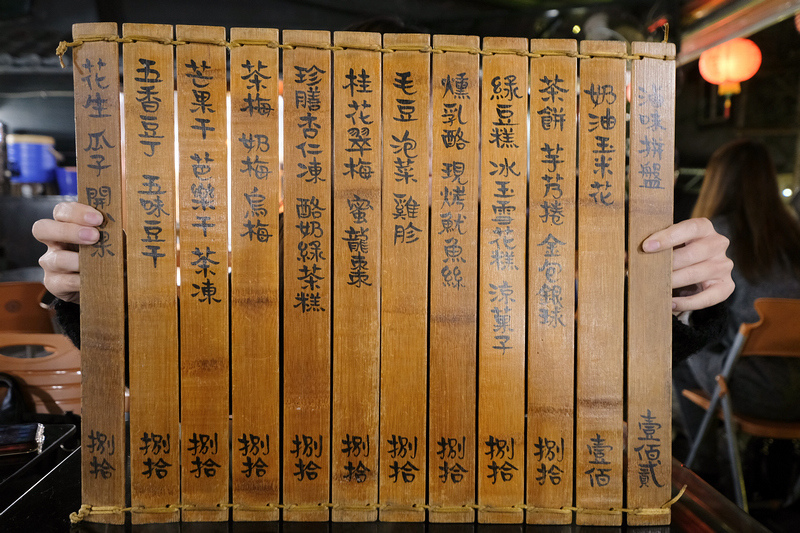 滷味拼盤 壹佰貳
奶油玉米花 壹佰
茶餅 芋艿捲 金包銀球 捌拾
綠豆糕 冰玉雪花糕 涼菓子 捌拾
燻乳酪 現烤魷魚絲 捌拾
毛豆 泡菜 雞胗 捌拾
桂花翠梅 蜜龍棗 捌拾
珍膳杏仁凍 酪奶綠茶糕 捌拾
茶梅 奶梅 烏梅 捌拾
芒果干 芭樂干 茶凍 捌拾
五香豆丁 五味豆干 捌拾
花生 瓜子 開心果 捌拾